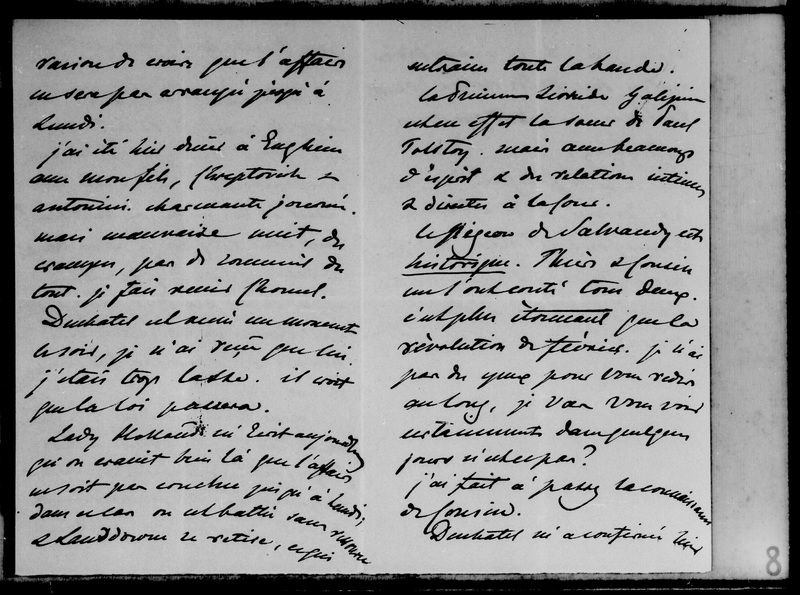 raison de croire que l'affaire
ne sera pas arrangée jusqu'à
Lundi.
j'ai été hier diner à Enghein
avec mon fils, Chreptovich &
antonini. charmante journée.
mais mauvaise nuit, des
crampes, pas de sommeil du
tout. je fais venir Chomel.
Duchatel est venu un moment
le soir, je n'ai reçu que lui
j'étais trop lasse. il croit
que la loi passera.
Lady Holland m'écrit aujourd'hui
qu'on craint bien là que l'affaire
ne soit pas conclue jusqu'à Lundi;
dans ce cas on est battu sans
& Landsdowne se retire, ce qui
entraine toute la bande.
la Princesse Léonide Galizin
est en effet la soeur de Paul
Tolstoy. mais avec beaucoup
d'esprit & des relations intimes
& directes à la Cour.
le Pigeon de Salvandy est
historique. Thiers & Cousin
me l'ont conté tous deux.
c'est plus étonnant que la
révolution de février. je n'ai
pas des yeux pour vous redire
au long, je vais vous voir
certainement dans quelques
jours n'est ce pas?
j'ai fait à passy la connaissance
de Cousin.
Duchatel m'a confirmé hier
8